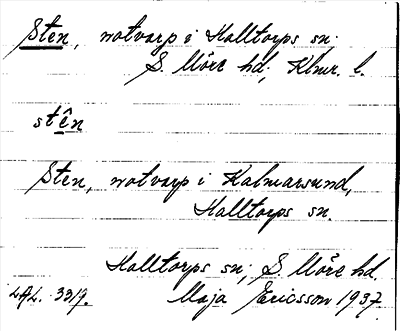 Sten, notvarp i Halltorps sn.
S. Möre hd, Klmr. l.
stên
Sten, notvarp i Kalmarsund,
Halltorps sn.
Halltorps sn, S. Möre hd.
LAL. 3319. Maja Ericsson 1937.